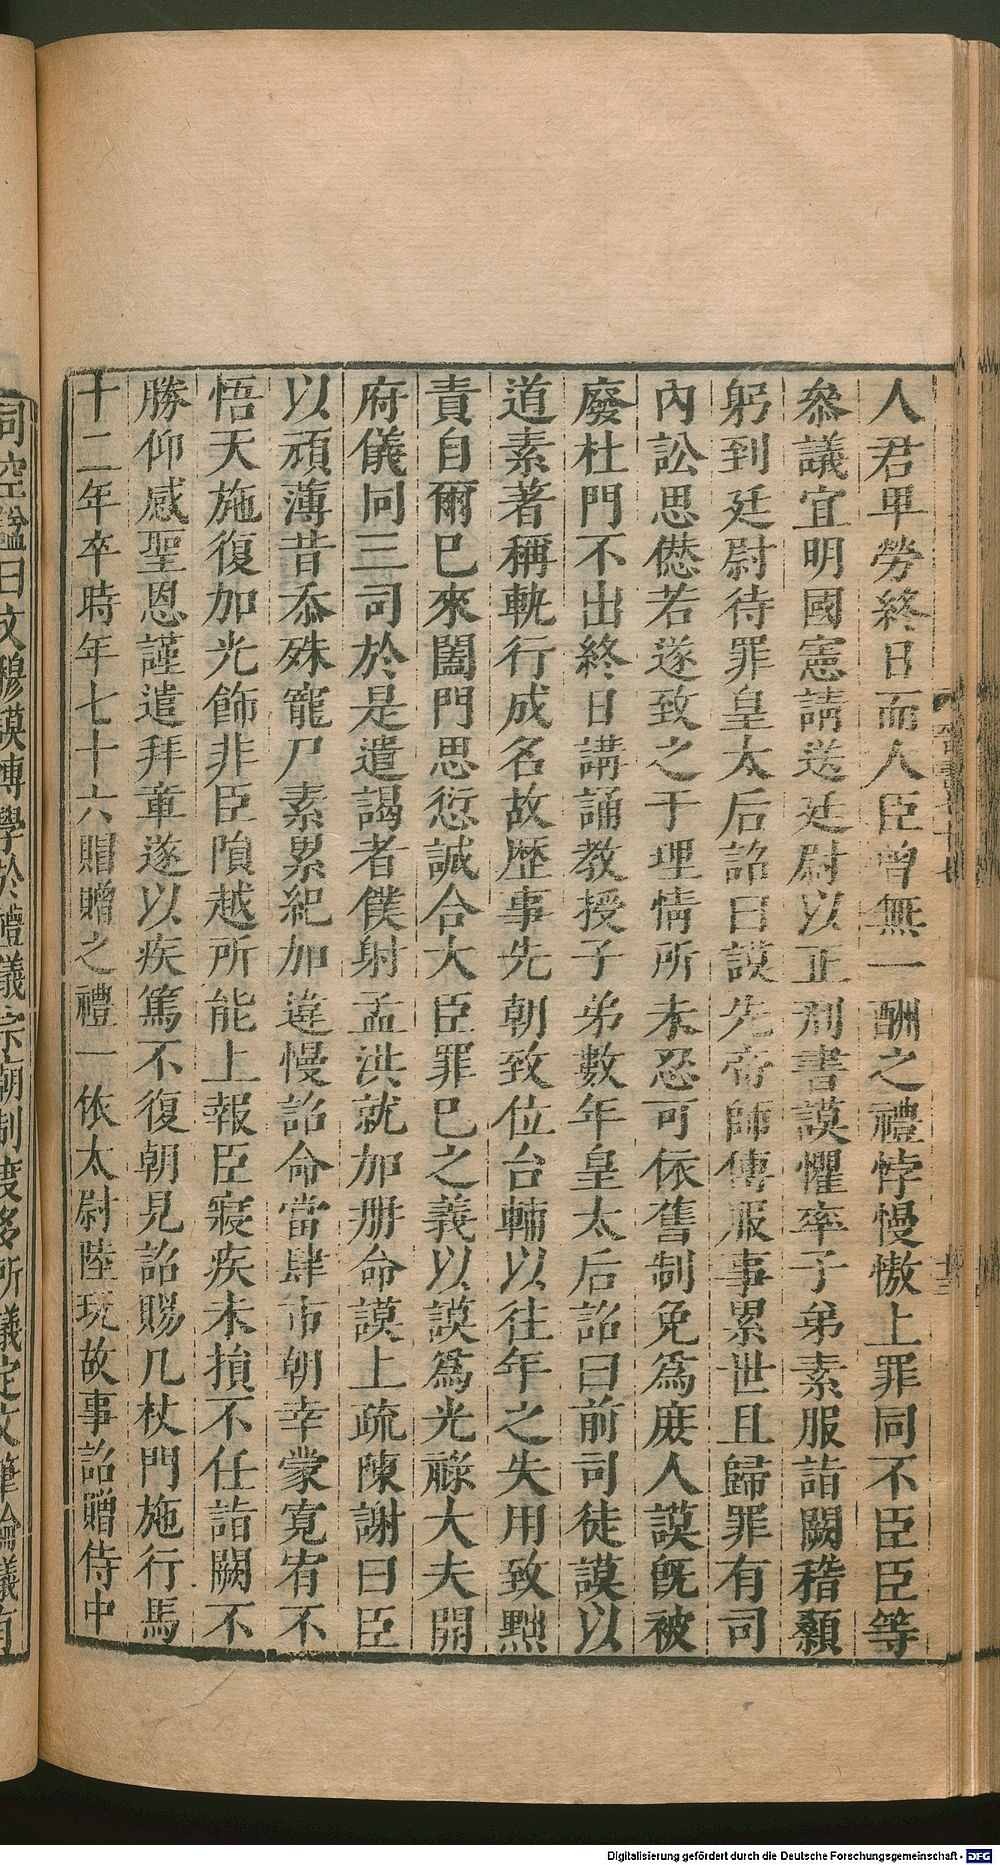 人君卑勞終日而人臣曾無一酬之禮悖慢慠上罪同不臣臣等
叅議宜明國憲請送廷尉以正刑書謨懼率子弟素服詣闕稽顙
躬到廷尉待罪皇太后詔曰謨先帝師傅服事累世且歸罪有司
內訟思愆若遂致之于理情所未忍可依舊制免爲庻人謨旣被
廢杜門不出終日講誦教授子弟數年皇太后詔曰前司徒謨以
道素著稱軌行成名故歷事先朝致位台輔以往年之失用致黜
責自爾已來闔門思愆誠合大臣罪已之義以謨爲光祿大夫開
府儀同三司於是遣謁者僕射孟洪就加冊命謨上疏陳謝曰臣
以頑薄昔忝殊寵尸素累紀加違慢詔命當肆市朝幸蒙寬宥不
悟天施復加光飾非臣隕越所能上報臣寢疾未損不任詣闕不
勝仰感聖恩謹遣拜章遂以疾篤不復朝見詔賜几杖門施行馬
十二年卒時年七十六賵贈之禮一依太尉陸玩故事詔贈侍中
司空謚曰文穆謨博學於禮儀宗廟制度多所議定文筆論議有
Digitalisierung gefördert durch die Deutsche Forschungsgemeinschaft - DFG